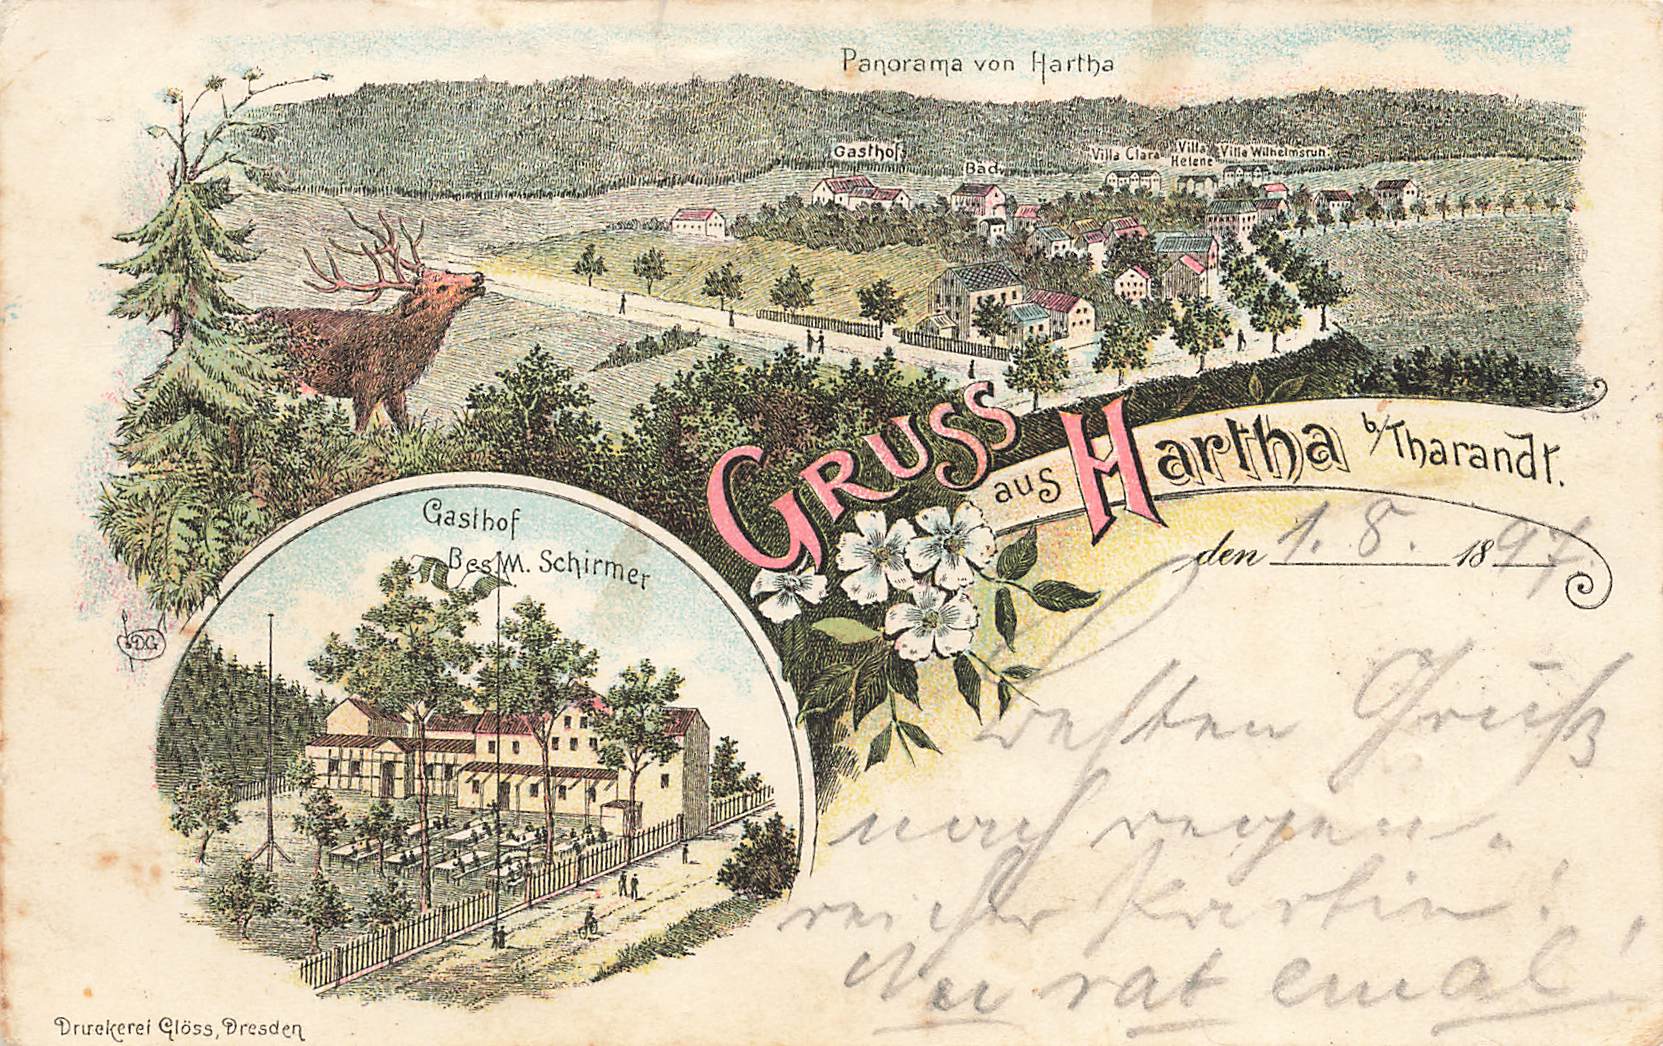 Panorama von Hartha
Gasthof
Bad
Villa Clara
Villa Helene
Villa Wilhelmsruh
GRUSS
aus Hartha b/Tharandt.
den 1. 8. 1897.
Gasthof
Bes. M. Schirmer
DG
besten Gruß
nach regen-
reicher Partie!
Nu rat emal!
Druckerei Glöss, Dresden